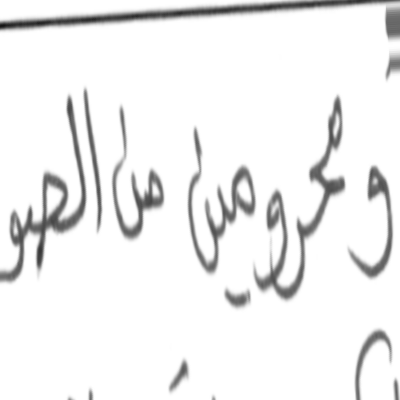 ومحرومين من الصو